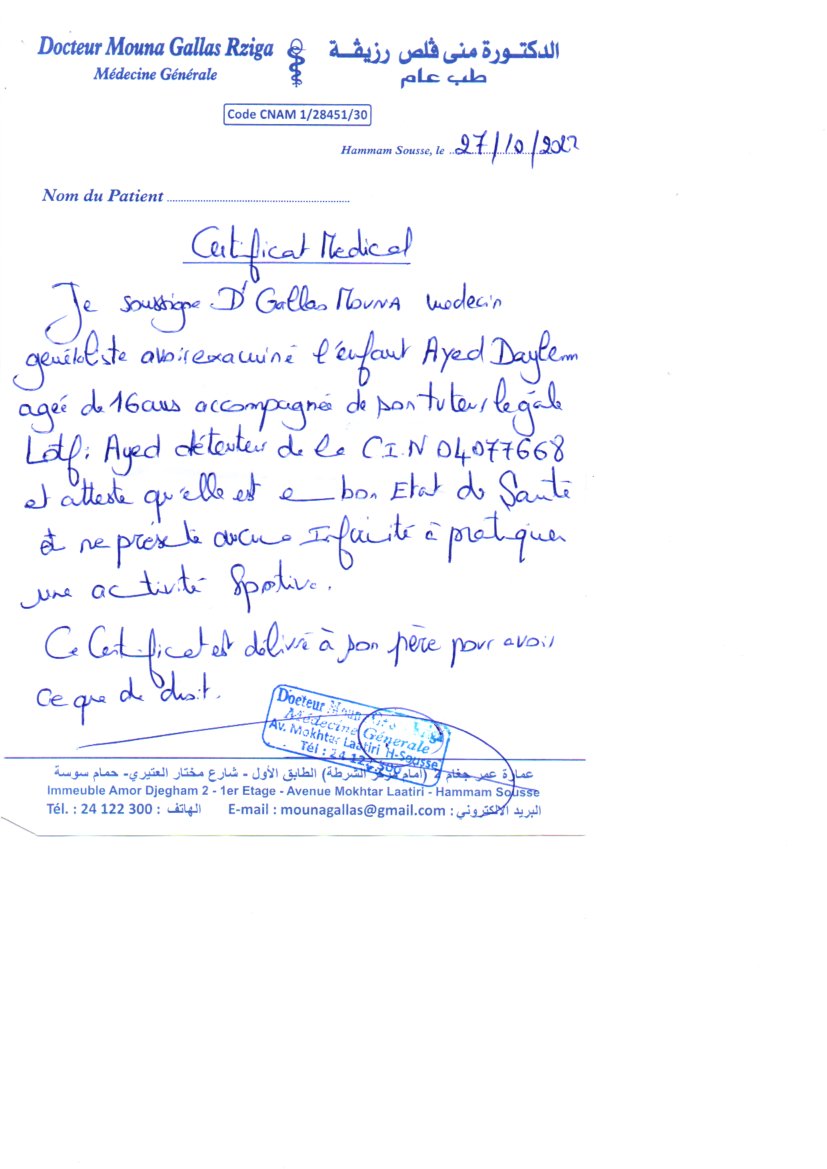 Docteur Mouna Gallas Rziga
Médecine Générale
الدكتورة منى ڨلص رزيڨة
طب عام
Code CNAM 1/28451/30
Hammam Sousse, le 27/10/2022
Nom du Patient
Certificat Medical
Je soussigne Dr Gallas MOUNA medecin
généraliste avoir examiné l'enfant Ayed Daylem
ageé de 16 ans accompagnée de son tuteur légale
Lotfi Ayed détenteur de la C.I.N 04077668
et atteste qu'elle est en bon Etat de Santé
et ne présente aucune Infirmité à pratiquer
une activité Sportive.
Ce Certificat est délivré à son père pour avoir
ce que de droit.
Docteur
Médecine Génerale
Av. Mokhtar Laatiri H-Sousse
Tél : 24 122 300
عمارة عمر جغام 2 (أمام مركز الشرطة) الطابق الأول - شارع مختار العتيري- حمام سوسة
Immeuble Amor Djegham 2 - 1er Etage - Avenue Mokhtar Laatiri - Hammam Sousse
Tél. : 24 122 300 : الهاتف E-mail : mounagallas@gmail.com : البريد الالكتروني